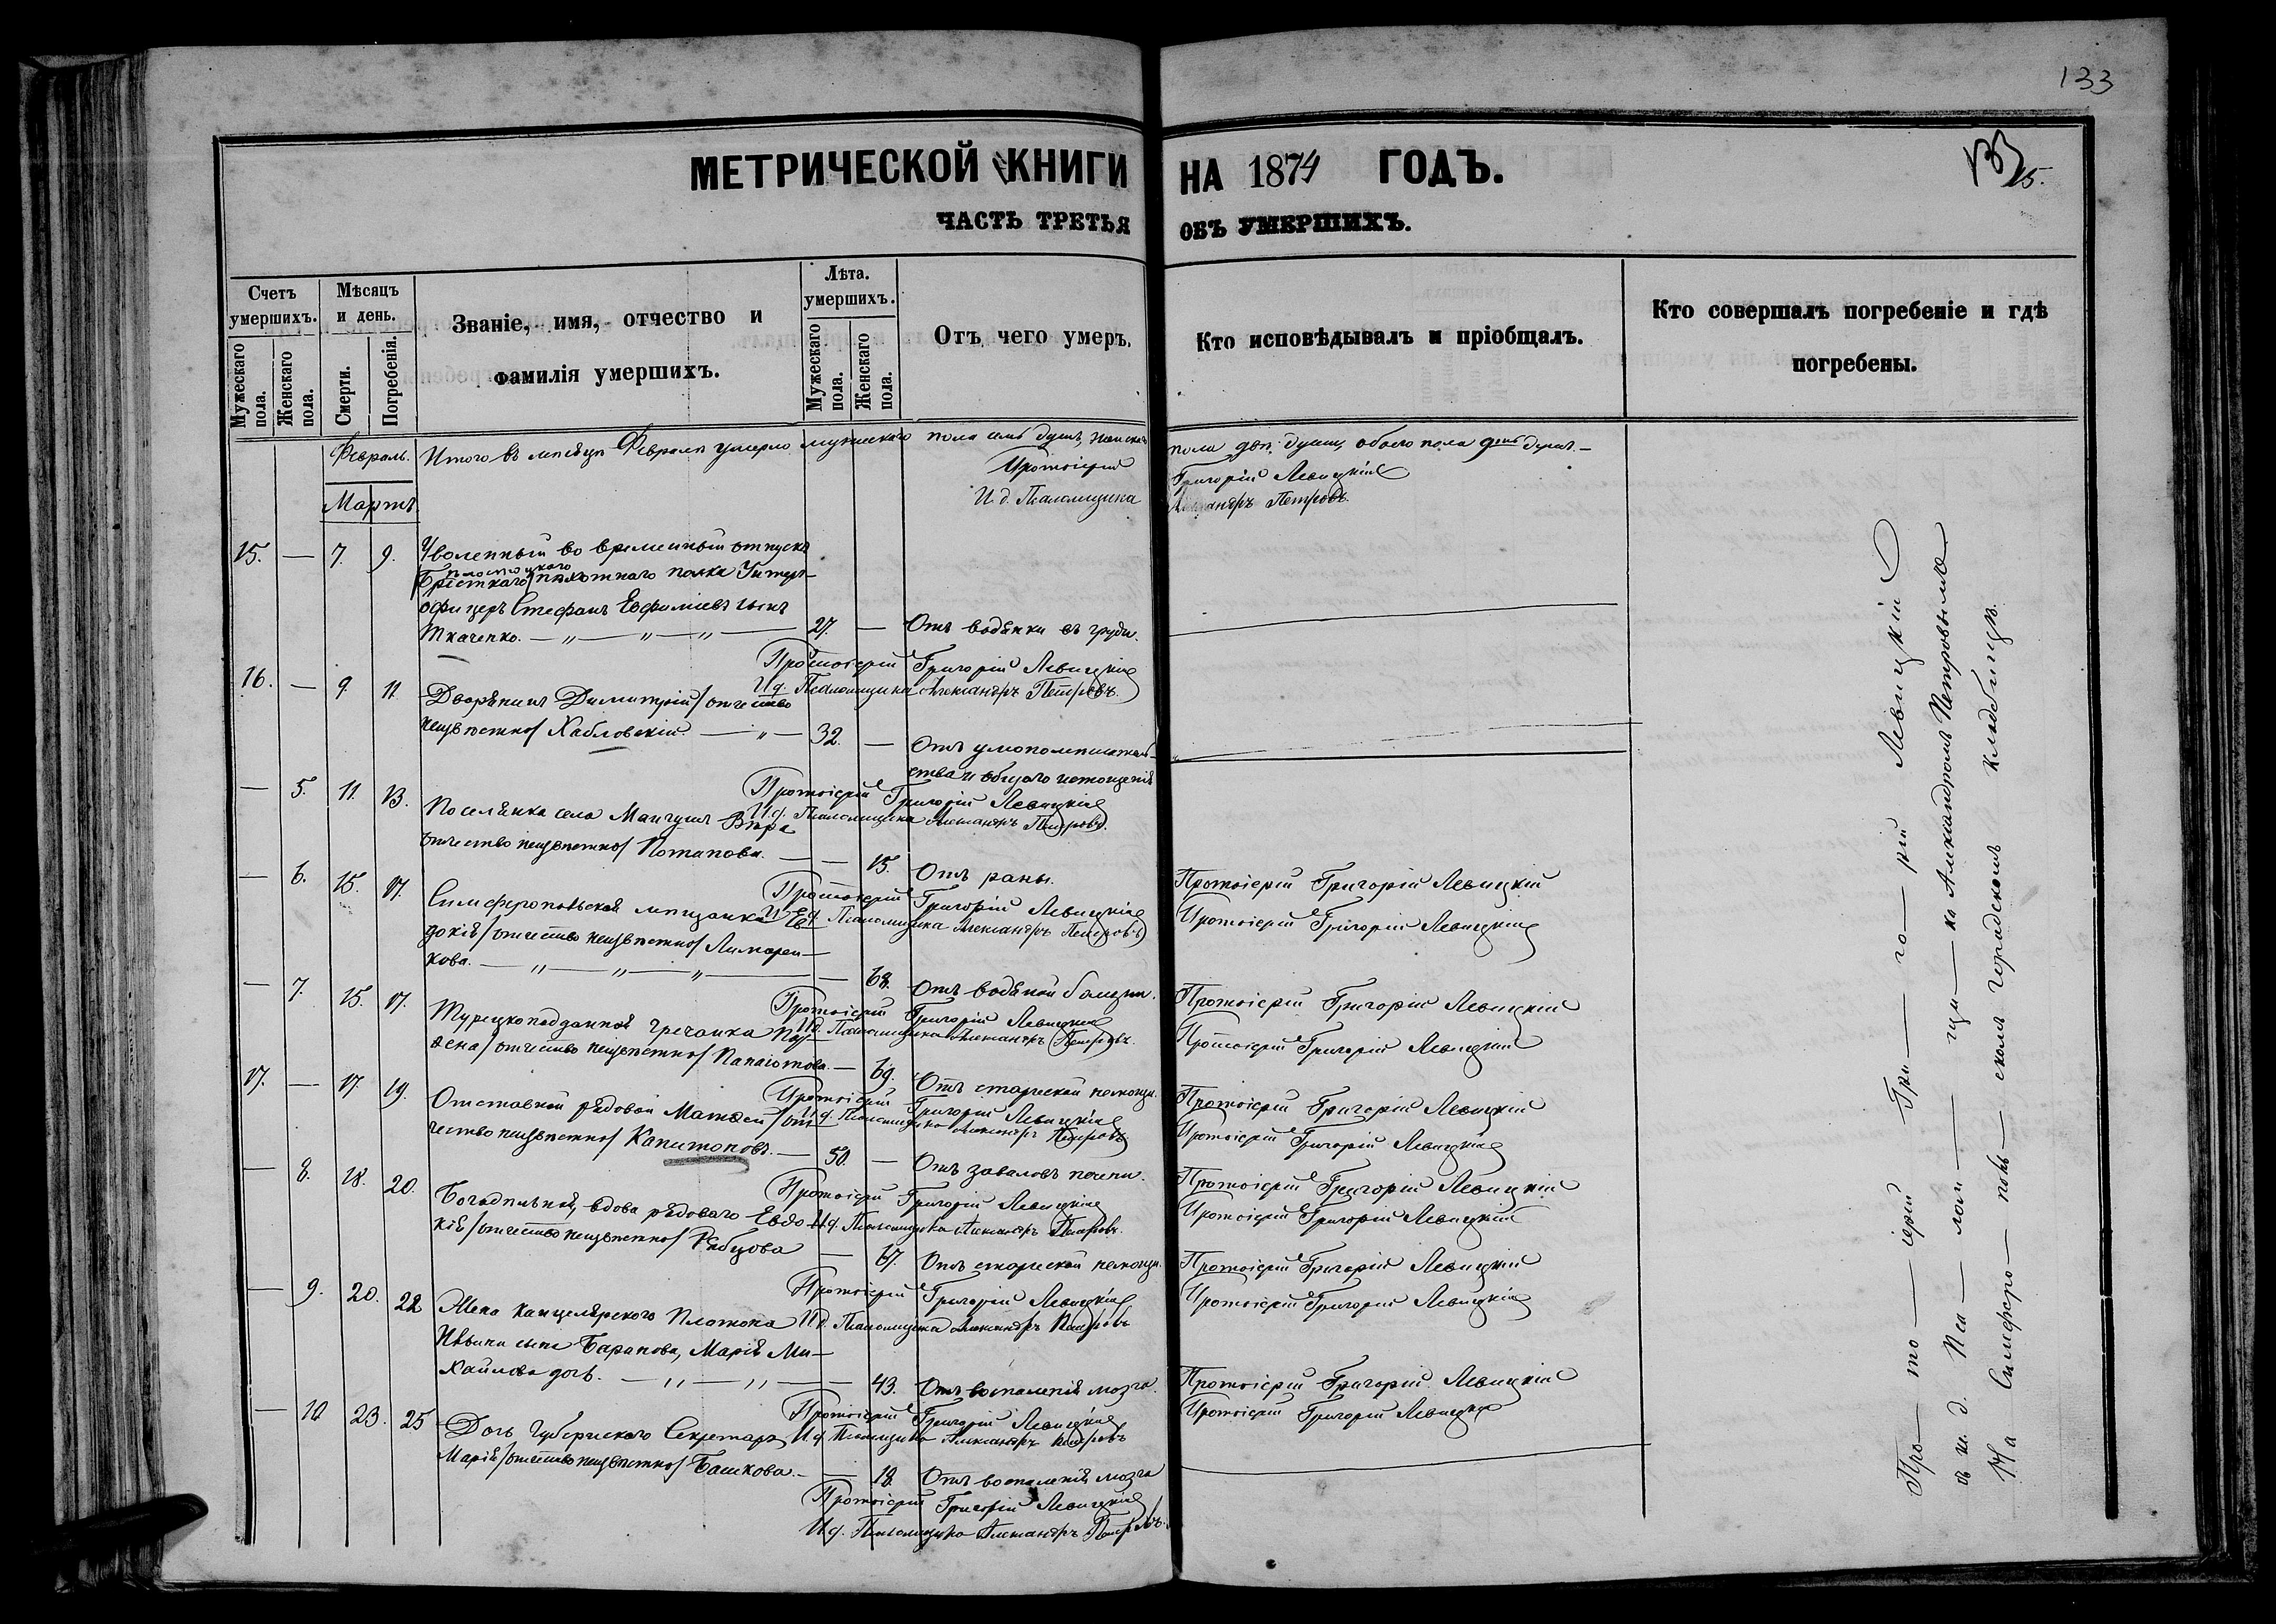 133
133
15.
МЕТРИЧЕСКОЙ КНИГИ НА 1874 ГОДЪ.
ЧАСТЬ ТРЕТЬЯ ОБЪ УМЕРШИХЪ.
Счетъ умершихъ.
Мужескаго пола.
Женскаго пола.
Мѣсяцъ и день.
Смерти.
Погребенія.
Званіе, имя, отчество и
фамилія умершихъ.
Лѣта умершихъ.
Мужескаго пола.
Женскаго пола.
Отъ чего умеръ.
Кто исповѣдывалъ и пріобщалъ.
Кто совершалъ погребеніе и гдѣ
погребены.
Февраль. Итого въ мѣсяцѣ Февралѣ умерло мужескаго пола семь душъ, женскаго пола двѣ души, обоего пола девять душъ.—
Протоіерей Григорій Левицкій
И. д. Псаломщика Александръ Петровъ.
Мартъ
15. — 7. 9. Уволенный во временный отпускъ
Брестскаго пѣхотнаго полка Унтеръ-
офицеръ Стефанъ Евфиміевъ сынъ
Ткаченко. — „ — „ — „ — 27. — Отъ водянки въ груди.
Протоіерей Григорій Левицкій
И. д. Псаломщика Александръ Петровъ.
16. — 9. 11. Дворянинъ Димитрій /отчество
неизвѣстно/ Хабловскій — „ — 32. — Отъ умопомѣшатель-
ства и общаго истощенія
Протоіерей Григорій Левицкій
И. д. Псаломщика Александръ Петровъ.
— 5. 11. 13. Поселянка села Мангушъ Вѣра
/отчество неизвѣстно/ Потапова. — — 15. Отъ раны. Протоіерей Григорій Левицкій
Протоіерей Григорій Левицкій Протоіерей Григорій Левицкій
И. д. Псаломщика Александръ Петровъ
— 6. 15. 17. Симферопольская мѣщанка Ев-
докія /отчество неизвѣстно/ Лимарен-
кова. — „ — „ — „ — — 68. Отъ водяной болѣзни. Протоіерей Григорій Левицкій
Протоіерей Григорій Левицкій Протоіерей Григорій Левицкій
И. д. Псаломщика Александръ Петровъ.
— 7. 15. 17. Турецкоподданная гречанка Пар-
ѳена /отчество неизвѣстно/ Панаіотова. — 69. Отъ старческой немощи. Протоіерей Григорій Левицкій
Протоіерей Григорій Левицкій Протоіерей Григорій Левицкій
И. д. Псаломщика Александръ Петровъ
17. — 17 19. Отставной рядовой Матѳей /от-
чество неизвѣстно/ Капитоновъ. — 50. — Отъ заваловъ печени. Протоіерей Григорій Левицкій
Протоіерей Григорій Левицкій Протоіерей Григорій Левицкій
И. д. Псаломщика Александръ Петровъ.
— 8. 18. 20. Богадѣльная, вдова рядоваго Евдо-
кія /отчество неизвѣстно/ Рябцова — 67. Отъ старческой немощи. Протоіерей Григорій Левицкій
Протоіерей Григорій Левицкій Протоіерей Григорій Левицкій
И. д. Псаломщика Александръ Петровъ
— 9. 20. 22 Жена канцелярскаго Платона
Ивана сына Баранова, Марія Ми-
хайлова дочь. — „ — „ — — 43. Отъ воспаленія мозга. Протоіерей Григорій Левицкій
Протоіерей Григорій Левицкій Протоіерей Григорій Левицкій
И. д. Псаломщика Александръ Петровъ
— 10 23. 25 Дочь Губернскаго Секретаря
Марія /отчество неизвѣстно/ Башкова. — — 18. Отъ воспаленія мозга
Протоіерей Григорій Левицкій
И. д. Псаломщика Александръ Петровъ.
Про — то — іерей Гри — го — рій Левицкій
съ и. д. Пса — лом — щи — ка Александромъ Петровымъ
На Симферо — поль — скомъ городскомъ кладбищѣ.